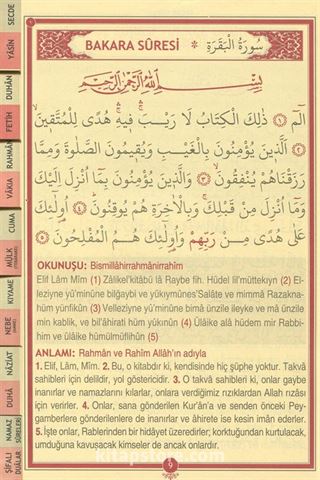 BAKARA SÛRESİ * سُورَةُ الْبَقَرَةِ
بِسْمِ اللهِ الرَّحْمٰنِ الرَّحِيمِ
الٓمٓ ﴿١﴾ ذٰلِكَ الْكِتَابُ لَا رَيْبَۛ فِيهِۛ هُدًى لِلْمُتَّقِينَ
﴿٢﴾ اَلَّذِينَ يُؤْمِنُونَ بِالْغَيْبِ وَيُقِيمُونَ الصَّلٰوةَ وَمِمَّا
رَزَقْنَاهُمْ يُنْفِقُونَ ﴿٣﴾ وَالَّذِينَ يُؤْمِنُونَ بِمَٓا اُنْزِلَ اِلَيْكَ
وَمَٓا اُنْزِلَ مِنْ قَبْلِكَ وَبِالْاٰخِرَةِ هُمْ يُوقِنُونَ ﴿٤﴾ اُولٰٓئِكَ
عَلٰى هُدًى مِنْ رَبِّهِمْ وَاُولٰٓئِكَ هُمُ الْمُفْلِحُونَ ﴿٥﴾
OKUNUŞU: Bismillâhirrahmânirrahîm
Elif Lâm Mîm (1) Zâlikel'kitâbü lâ Raybe fîh. Hüdel lil'müttekıyn (2) El-
lezîyne yü'minûne bilğaybi ve yükıymûnes'Salâte ve mimmâ Razakna-
hüm yünfikûn (3) Vellezîyne yü'minûne bimâ ünzile ileyke ve mâ ünzile
min kablik, ve bil'âhirati hüm yükınûn (4) Ülâike alâ hüdem mir Rabbi-
him ve ülâike hümülmüflihûn (5)
ANLAMI: Rahmân ve Rahîm Allâh'ın adıyla
1. Elif, Lâm, Mîm. 2. Bu, o kitabdır ki, kendisinde hiç şüphe yoktur. Takvâ
sahibleri için delildir, yol göstericidir. 3. O takvâ sahibleri ki, onlar gaybe
inanırlar ve namazlarını kılarlar, onlara verdiğimiz rızıklardan Allah rızâsı
için verirler. 4. Onlar, sana gönderilen Kur'ân'a ve senden önceki Pey-
gamberlere gönderilenlere de inanırlar ve âhirete ise kesin îmân ederler.
5. İşte onlar, Rablerinden bir hidâyet üzeredirler; korktuğundan kurtulacak,
umduğuna kavuşacak kimseler de ancak onlardır.
kitapstore.com
9
SECDE
YÂSÎN
DUHÂN
FETİH
RAHMÂN
VÂKIA
CUMA
MÜLK
KIYAME
NEBE
NÂZİAT
DUHÂ
NAMAZ
SÛRELERİ
ŞİFALI
DUÂLAR